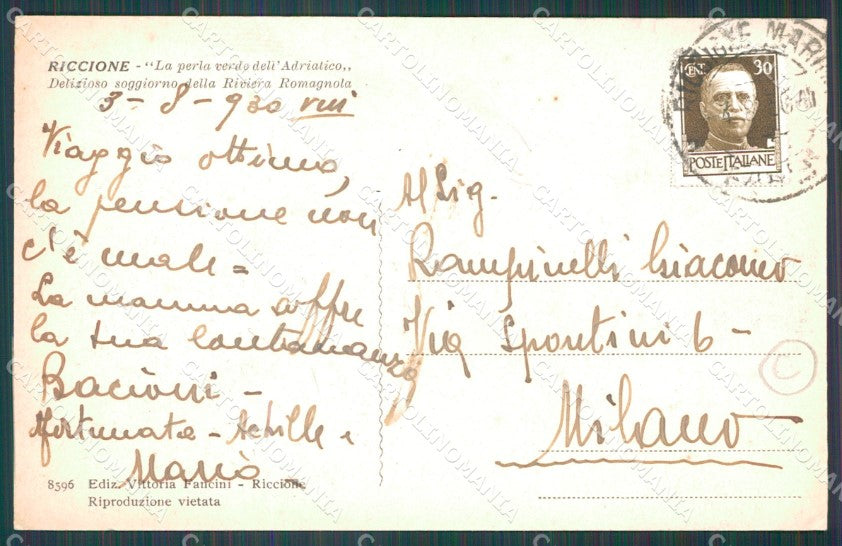 RICCIONE - "La perla verde dell'Adriatico,,
Delizioso soggiorno della Riviera Romagnola
3 - 8 - 930 VIII
Viaggio ottimo,
la pensione non
c'è male =
La mamma soffre
la tua lontananza
Bacioni -
Fortunata - Achille e
Mario -
8596 Ediz. Vittoria Fancini - Riccione
Riproduzione vietata
CENT. 30
POSTE ITALIANE
Al Sig.
Rampinelli Giacomo
Via Spontini 6 -
Milano
C
CARTOLINOMANIA